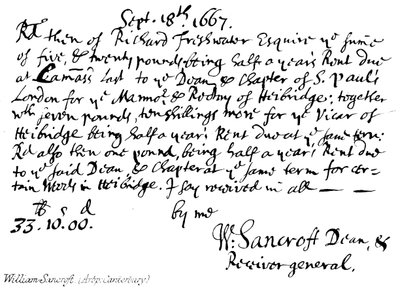 Sept. 18th. 1667.
Rd. then of Richard Freshwater Esquire ye summe
of five, & twenty pounds, being half a year's Rent due
at Lamass last to ye Dean, & Chapter of S. Paul's
London for ye Mannor, & Rectory of Heibridge; together
wth seven pounds, ten shillings more for ye Vicar of
Heibridge being half a year's Rent due at ye same term:
Rd also then one pound, being half a year's Rent due
to ye said Dean, & Chapter at ye same term for cer-
tain Woods in Heibridge. I say received in all
lb s d by me
33. 10. 00.
W. Sancroft Dean, &
Receiver general.
William Sancroft. (Archp: Canterbury)